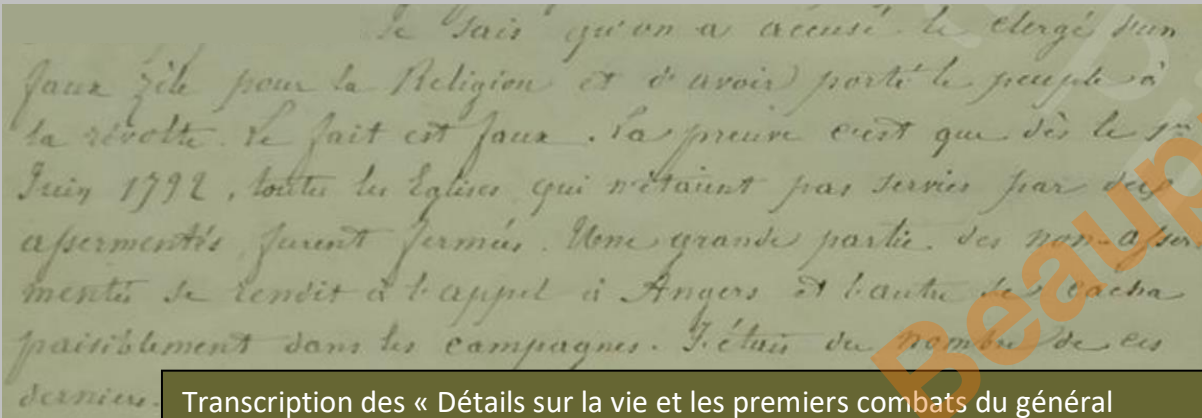 Je sais qu'on a accusé le clergé d'un
faux zèle pour la Religion et d'avoir porté le peuple à
la révolte. Le fait est faux. La preuve c'est que dès le 1er
Juin 1792, toutes les Eglises qui n'étaient pas servies par des
assermentés, furent fermées. Une grande partie des non-asser
mentés se rendit à l'appel à Angers et l'autre se cacha
paisiblement dans les campagnes. J'étais du nombre de ces
derniers.
Transcription des « Détails sur la vie et les premiers combats du général
Beaup